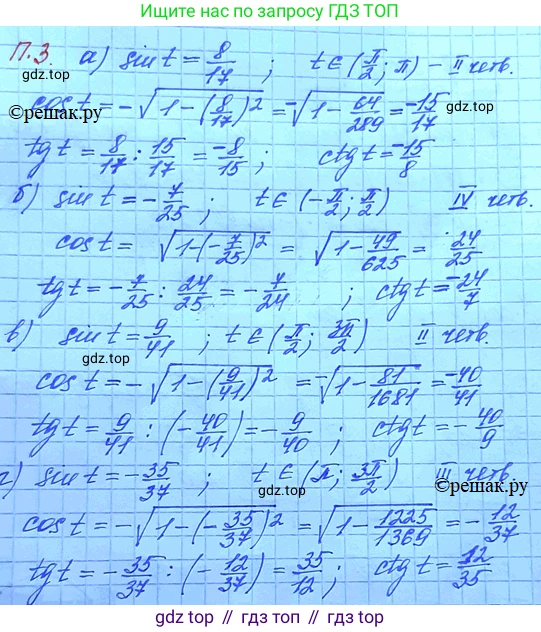 Ищите нас по запросу ГДЗ ТОП
gdz.top
П.3 а) sin t = 8/17 ; t ∈ (π/2 ; π) – II четв.
cos t = -√(1-(8/17)²) = -√(1 - 64/289) = -15/17
©решак.ру
tg t = 8/17 : 15/17 = -8/15 ; ctg t = -15/8
gdz.top
б) sin t = -7/25 ; t ∈ (-π/2 ; π/2) IV четв.
cos t = √(1-(-7/25)²) = √(1 - 49/625) = 24/25
tg t = -7/25 : 24/25 = -7/24 ; ctg t = -24/7
gdz.top
в) sin t = 9/41 ; t ∈ (π/2 ; 3π/2) II четв.
gdz.top
cos t = -√(1-(9/41)²) = -√(1 - 81/1681) = -40/41
tg t = 9/41 : (-40/41) = -9/40 ; ctg t = -40/9
г) sin t = -35/37 ; t ∈ (π ; 3π/2) III четв.
gdz.top
©решак.ру
cos t = -√(1-(-35/37)²) = √(1 - 1225/1369) = -12/37
tg t = -35/37 : (-12/37) = 35/12 ; ctg t = 12/35
gdz.top // гдз.топ // gdz.top // гдз.топ